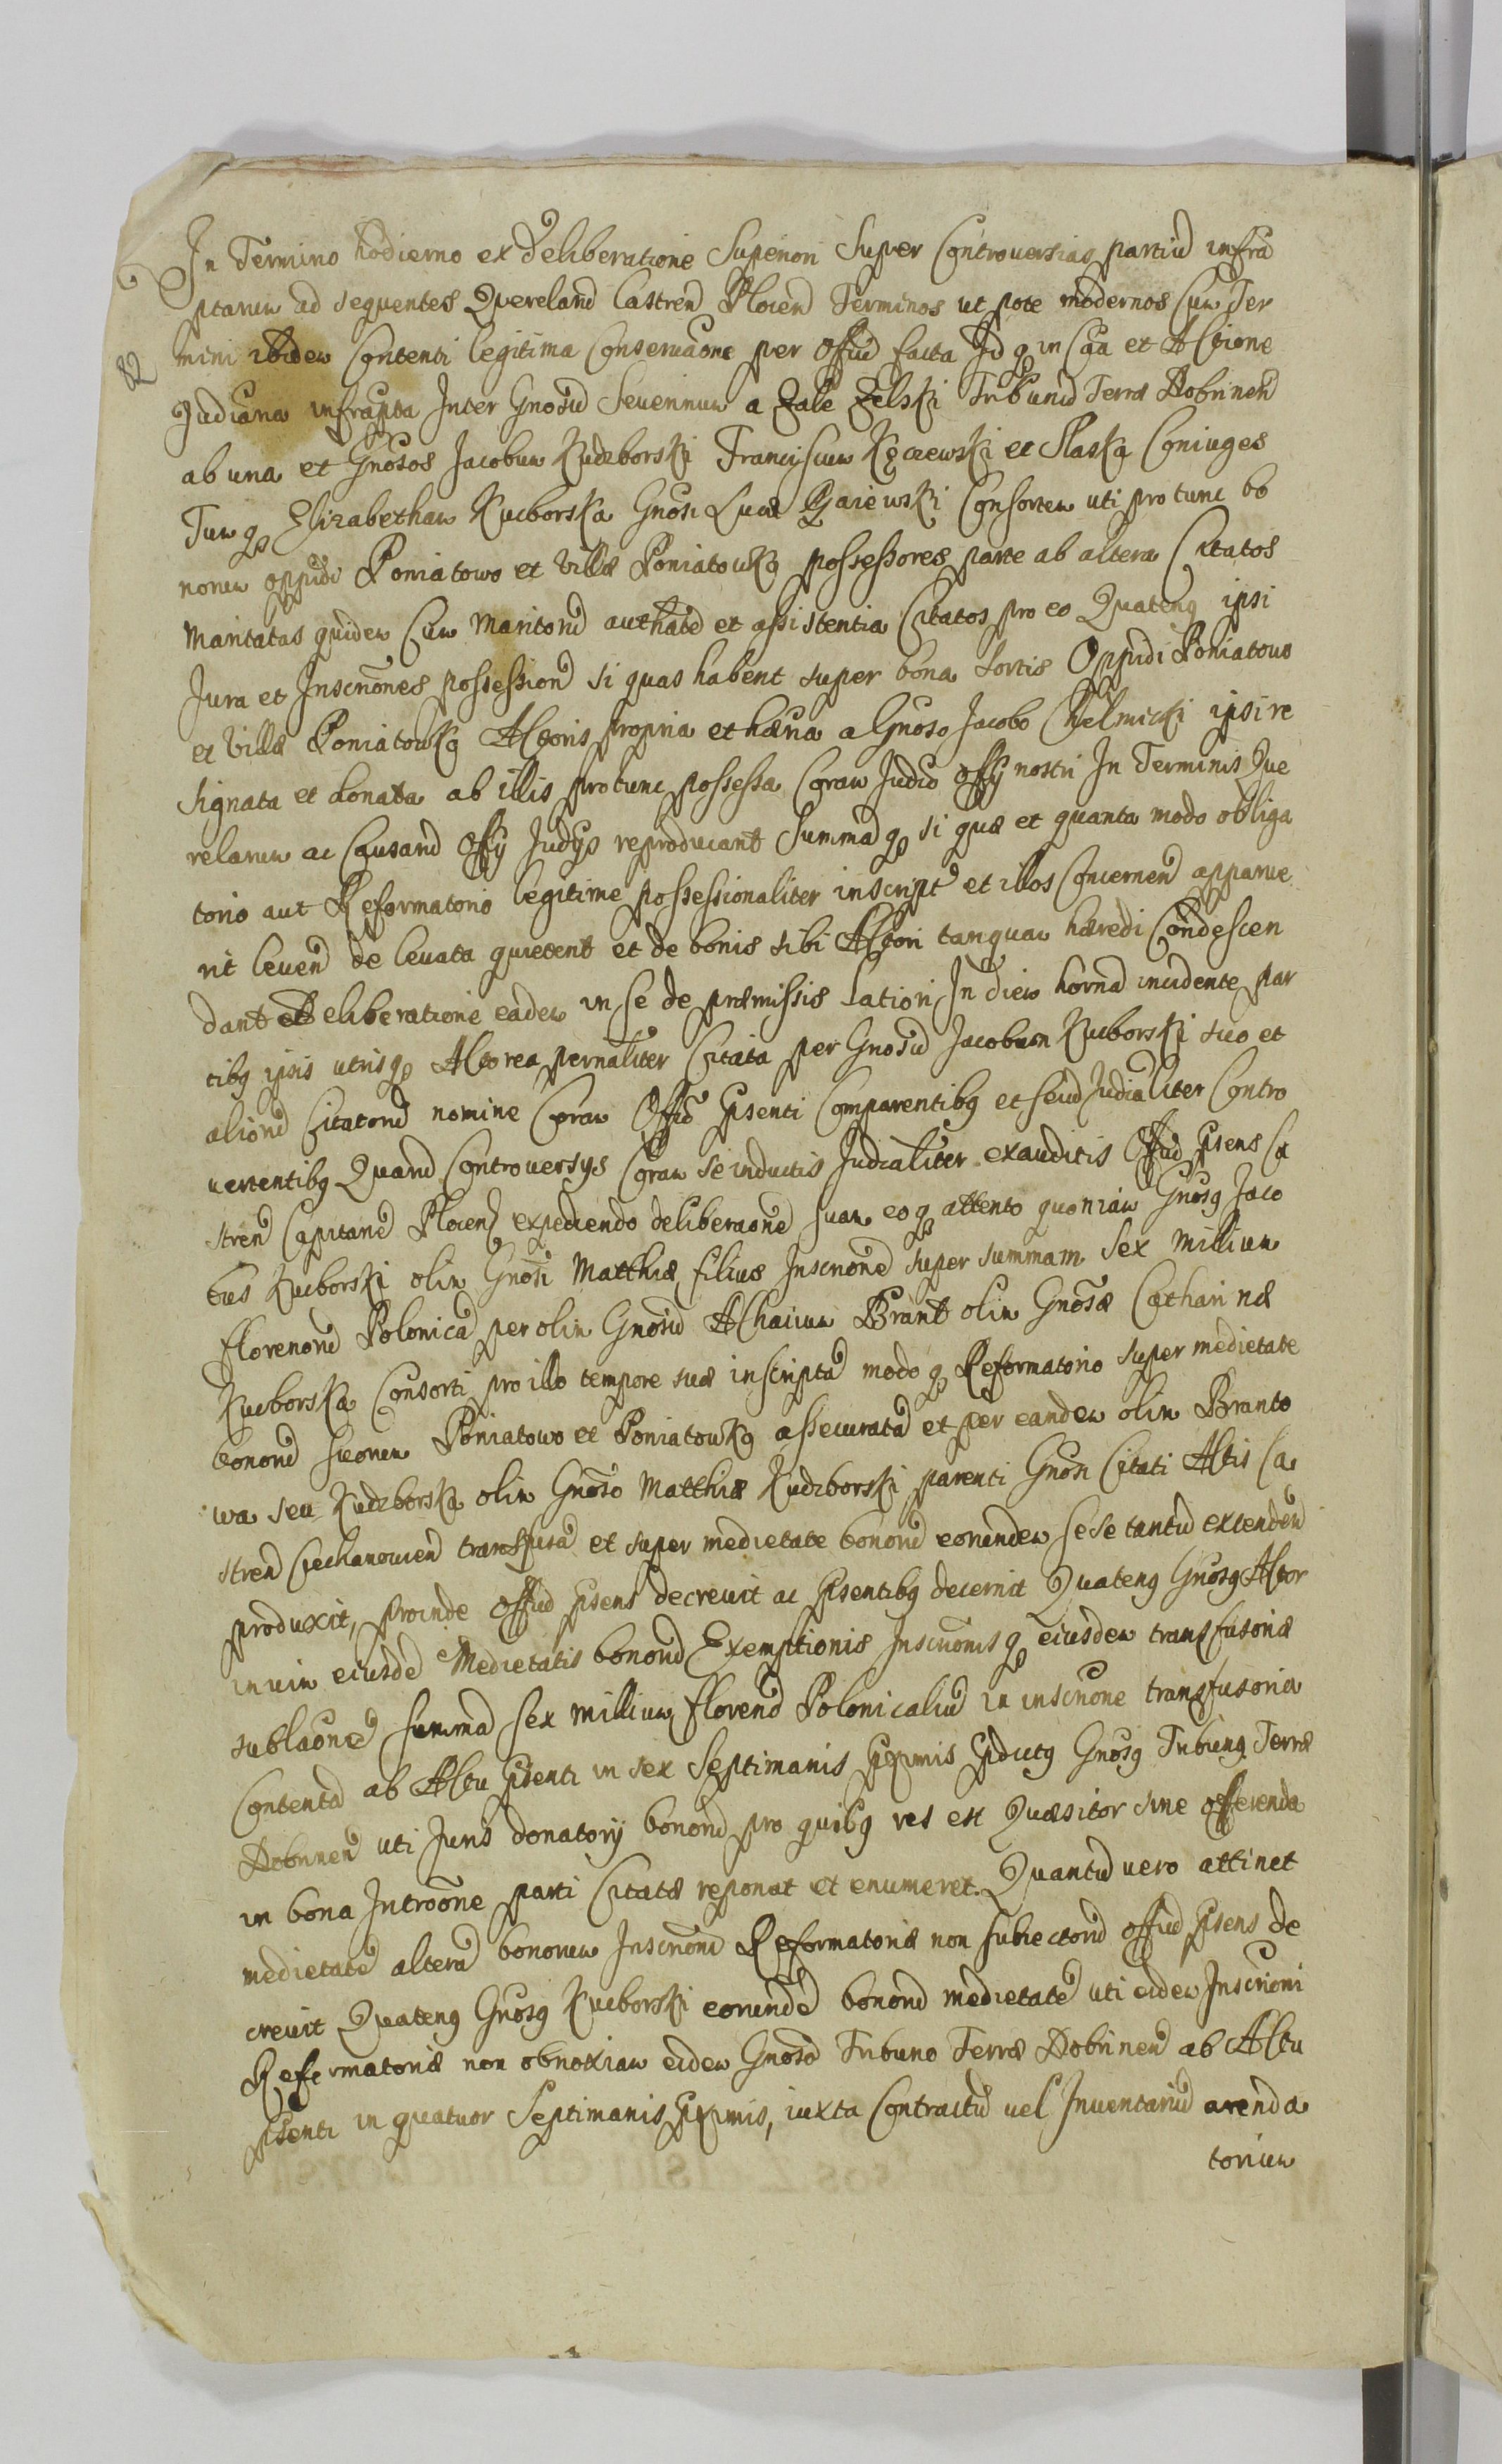 In Termino hodierno ex Deliberatione Superiori Super Controversias partiū infra
ptarum ad sequentes Querelarū Castren Plocen Terminos ut pote modernos Cum Ter
mini ibidem Contenti legitima Conservaone per Offiū facta Id q in Caa et Actione
Judiciaria infrapta Inter Gnosū Severinum a Zale Zelski Tribunū Terræ Dobrinen
ab una et Gnosos Jacobum Kudzborski Franciscum Kęczewski et Płaską Coniuges
Tum q Elizabetham Kucborska Gnosi Lucæ Gaiewski Consortem uti pro tunc bo
norum oppidi Poniatowo et Villæ Poniatowką possessores parte ab altera Citatos
Maritatas quidem Cum Maritorū authatē et assistentia Citatos pro eo Quatenq ipsi
Jura et Inscriones possession si quas habent super bona sortis Oppidi Poniatowo
et Villæ Poniatowką Actoris propria et hæria a Gnoso Jacobo Chelmicki ipsi re
signata et donata ab illis pro tunc possessa Coram Judio Offy nostri In Terminis Que
relarum ac Causarū Offy Judys reproducant Summa q si quæ et quanta modo obliga
torio aut Reformatorio legitime possessionaliter inscript et illos Concernen apparue
rit leven de levata quietent et de bonis sibi Actori tanquam hæredi Condescen
dant Deliberatione eadem in se de præmissis latiori In diem hornā incidente par
tibq ipsis utrisq Actorea pernaliter Citata per Gnosū Jacobum Kucborski suo et
aliorū Citatorū nomine Coram Offio Psenti Comparentibq et seīd Judialiter Contro
vertentibq Quarū Controversys Coram se inductis Judialiter exauditis Offiū Psens Ca
stren Capitane Plocen expediendo deliberaone suam eo q attento quoniam Gnosq Jaco
bus Kucborski olim Gnosi Matthiæ filius Inscrione super summam Sex Millium
florenorū Polonica per olim Gnosū Achacium Brant olim Gnosæ Catharinæ
Kucborska Consorti pro illo tempore suæ inscripta modo q Reformatorio super medietate
bonorū suorum Poniatowo et Poniatowką assecurata et per eandem olim Branto
wa seu Kudzborska olim Gnoso Matthiæ Kudzborski parenti Gnosi Citati Actis Ca
stren Ciechanowien transfusa et super medietate bonorū eorundem se se tantū extenden
produxit, proinde Offiū Psens decrevit ac Psentibq decernit Quatenq Gnosq Actor
in vim eiusdē Medietatis bonorū Exemptionis Inscrionis q eiusdem transfusoriæ
sublaone summā Sex Millium florenō Polonicaliū in inscrione transfusoria
Contentā ab Actu Psenti in sex Septimanis Pximis Pdictq Gnosq Tribunq Terræ
Dobrinen uti Juris donatory bonorū pro quibq res est Quæsitor sine offerenda
in bona Introone parti Citatæ reponat et enumeret. Quantū vero attinet
medietatē alterā bonorum Inscrioni Reformatoriæ non subiectorū offiū Psens de
crevit Quatenq Gnosq Kucborski eorundē bonorū medietatē uti eidem Inscrioni
Reformatoriæ non obnoxiam eidem Gnoso Tribuno Terræ Dobrinen ab Actu
Psenti in quatuor Septimanis Pximis, iuxta Contractū vel Inventariū arenda
torium